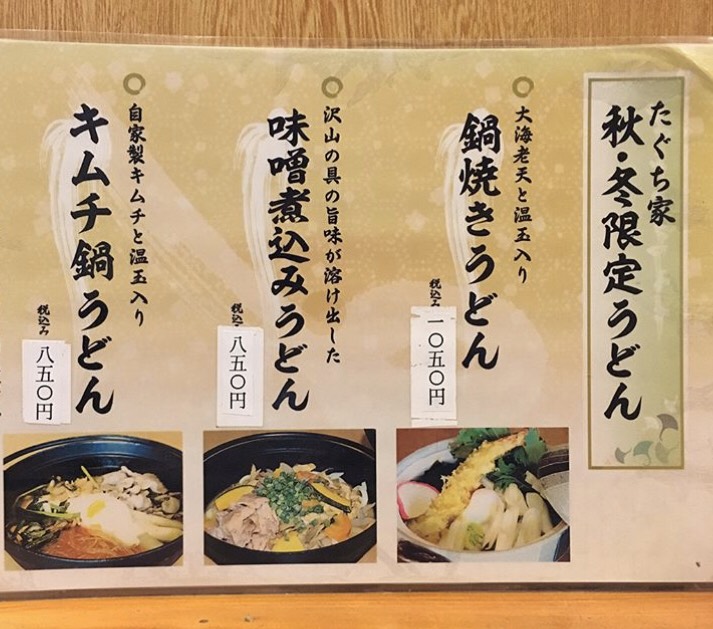 たぐち家
秋・冬限定うどん
大海老天と温玉入り
鍋焼きうどん
税込み
一〇五〇円
沢山の具の旨味が溶け出した
味噌煮込みうどん
税込み
八五〇円
自家製キムチと温玉入り
キムチ鍋うどん
税込み
八五〇円